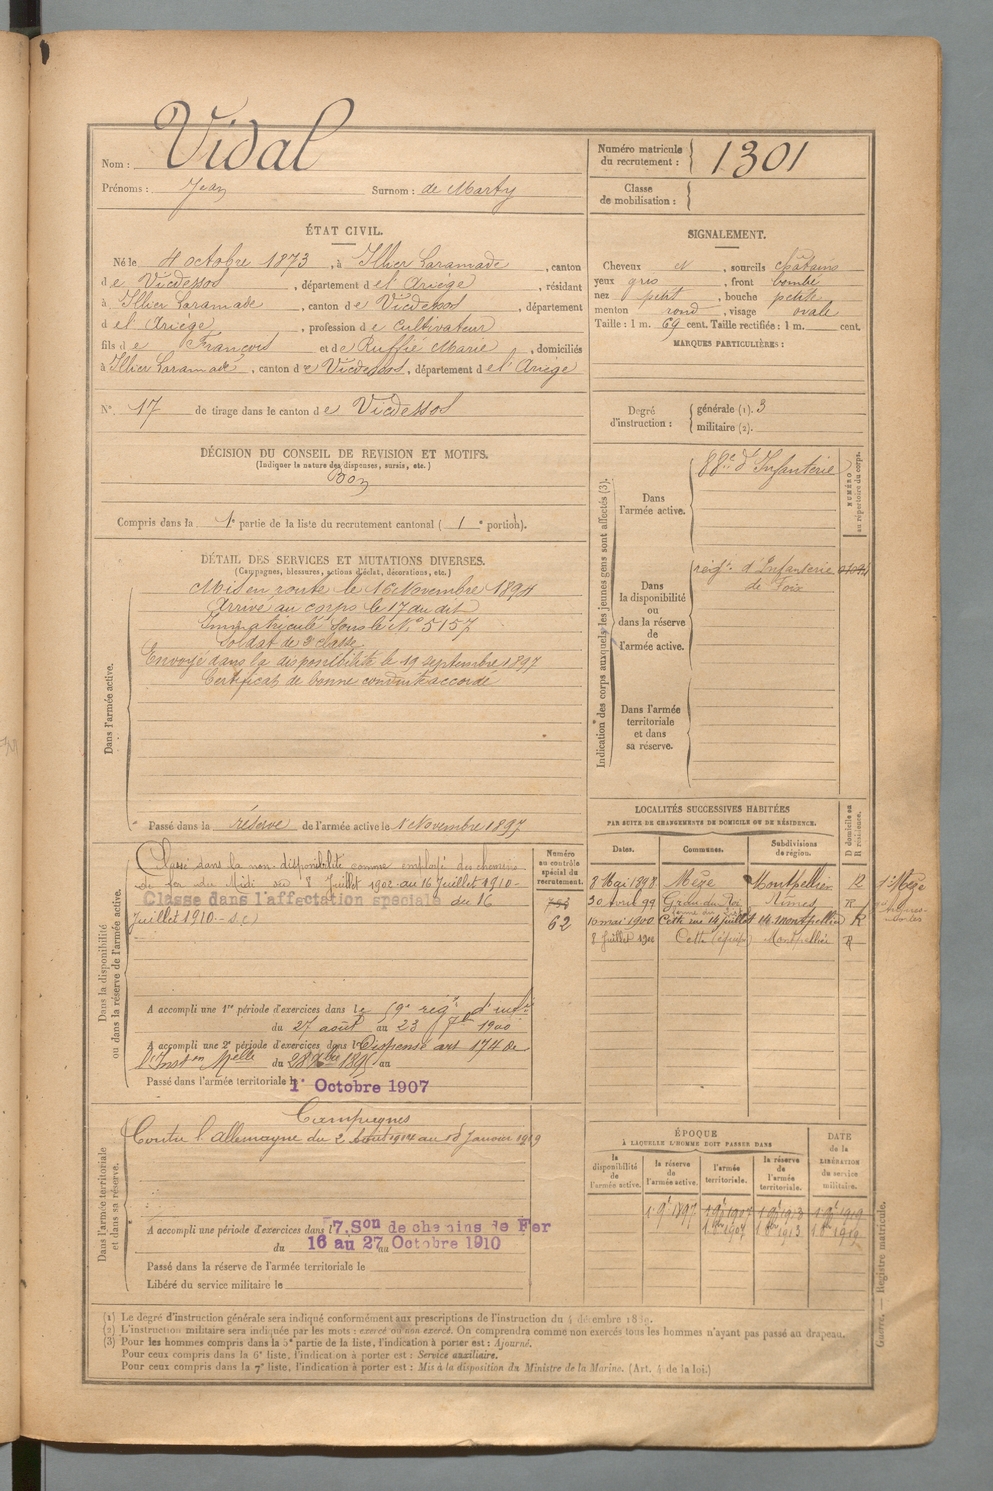 Nom : Vidal
Prénoms : Jean Surnom : de Marty
Numéro matricule du recrutement : 1301
Classe de mobilisation :
ÉTAT CIVIL.
Né le 4 octobre 1873, à Illier Laramade, canton
de Vicdessos, département de l'Ariège, résidant
à Illier Laramade, canton de Vicdessos, département
de l'Ariège, profession de Cultivateur
fils de François et de Ruffié Marie, domiciliés
à Illier Laramade, canton de Vicdessos, département de l'Ariège
N° 17 de tirage dans le canton de Vicdessos
SIGNALEMENT.
Cheveux et, sourcils châtains
yeux gris, front bombé
nez petit, bouche petite
menton rond, visage ovale
Taille : 1 m. 69 cent. Taille rectifiée : 1 m. cent.
MARQUES PARTICULIÈRES :
Degré d'instruction : générale (1). 3
militaire (2).
DÉCISION DU CONSEIL DE REVISION ET MOTIFS.
(Indiquer la nature des dispenses, sursis, etc.)
Bon
Compris dans la 1e partie de la liste du recrutement cantonal ( 1 e portion).
DÉTAIL DES SERVICES ET MUTATIONS DIVERSES.
(Campagnes, blessures, actions d'éclat, décorations, etc.)
Dans l'armée active.
Mis en route le 16 Novembre 1894
Arrivé au corps le 17 du dit
Immatriculé sous le N° 5157
Soldat de 2e classe
Envoyé dans la disponibilité le 19 septembre 1897
Certificat de bonne conduite accordé
Passé dans la réserve de l'armée active le 1 Novembre 1897
Indication des corps auxquels les jeunes gens sont affectés (3).
NUMÉRO au répertoire du corps.
Dans l'armée active.
88e d'Infanterie
Dans la disponibilité ou dans la réserve de l'armée active.
régt d'Infanterie
de Foix
Dans l'armée territoriale et dans sa réserve.
Dans la disponibilité ou dans la réserve de l'armée active.
Numéro au contrôle spécial du recrutement.
62
Classé dans la non-disponibilité comme employé des chemins
de fer du Midi du 8 Juillet 1902 au 16 Juillet 1910 -
Classé dans l'affectation spéciale du 16
Juillet 1910 -
A accompli une 1re période d'exercices dans le 59e régt d'infie
du 27 août au 23 7bre 1900
A accompli une 2e période d'exercices dans l Dispensé art 174 de
l'Inston Melle du 28 Xbre 1895 au
Passé dans l'armée territoriale le 1er Octobre 1907
LOCALITÉS SUCCESSIVES HABITÉES
PAR SUITE DE CHANGEMENTS DE DOMICILE OU DE RÉSIDENCE.
Dates. Communes. Subdivisions de région. D domicile ou R résidence.
8 Mai 1898 Mèze Montpellier R
30 avril 99 Grau du Roi Nîmes R
10 mai 1900 Cette rue 14 juillet 14 Montpellier R
8 Juillet 1902 Cette Montpellier R
Dans l'armée territoriale et dans sa réserve.
Campagnes
Contre l'allemagne du 2 Août 1914 au 10 Janvier 1919
A accompli une période d'exercices dans l 7.Son de chemins de Fer
du 16 au 27 Octobre 1910
Passé dans la réserve de l'armée territoriale le
Libéré du service militaire le
ÉPOQUE
À LAQUELLE L'HOMME DOIT PASSER DANS
la disponibilité de l'armée active. la réserve de l'armée active. l'armée territoriale. la réserve de l'armée territoriale. DATE de la LIBÉRATION du service militaire.
1 9e 1897 1 9e 1907 1 9e 1913 1 9e 1919
1 8bre 1907 1 8bre 1913 1 8bre 1919
(1) Le degré d'instruction générale sera indiqué conformément aux prescriptions de l'instruction du 4 décembre 1889.
(2) L'instruction militaire sera indiquée par les mots : exercé ou non exercé. On comprendra comme non exercés tous les hommes n'ayant pas passé au drapeau.
(3) Pour les hommes compris dans la 5e partie de la liste, l'indication à porter est : Ajourné.
Pour ceux compris dans la 6e liste, l'indication à porter est : Service auxiliaire.
Pour ceux compris dans la 7e liste, l'indication à porter est : Mis à la disposition du Ministre de la Marine. (Art. 4 de la loi.)
Guerre. — Registre matricule.